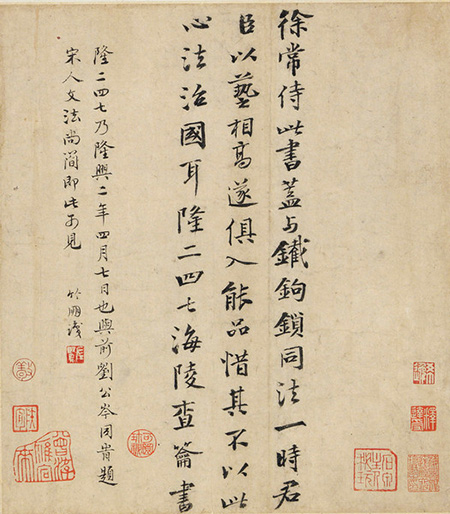 徐常侍此書蓋与鐵鉤鎖同法一時君
臣以藝相高遂俱入能品惜其不以此
心法治國耳隆二四七海陵查籥書
隆二四七乃隆興二年四月七日也與前劉公岑同旹題
宋人文法尚簡即此可見